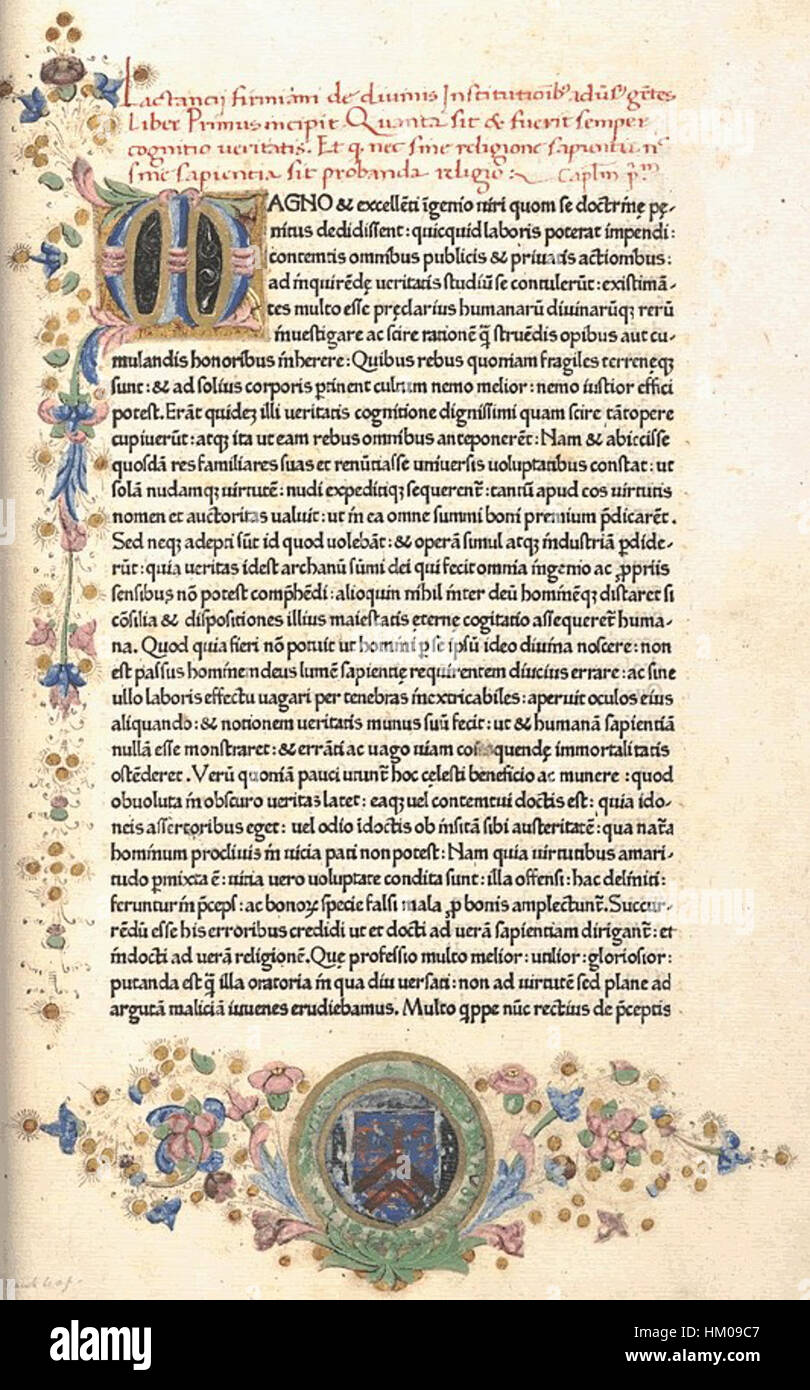 Lactancii firmiani de diuinis Institutioib' aduſ' gẽtes
Liber Primus incipit. Quanta sit & fuerit semper
cognitio ueritatis. Et q nec sine religione sapientia nec
sine sapientia sit probanda religio: Caplm pͥmͫ
MAGNO & excellẽti ĩgenio uiri quom se doctrinę pę-
nitus dedidissent: quicquid laboris poterat impendi:
contemtis omnibus publicis & priuatis actionibus:
ad inquirendę ueritatis studiũ se contulerũt: existimã-
tes multo esse pręclarius humanarũ diuinarũqꝫ rerũ
inuestigare ac scire rationẽ q̃ struẽdis opibus aut cu-
mulandis honoribus inherere: Quibus rebus quoniam fragiles terreneqꝫ
sunt: & ad solius corporis ꝑtinent cultum nemo melior: nemo iustior effici
potest. Erãt quideꝫ illi ueritatis cognitione dignissimi quam scire tãtopere
cupiuerũt: atqꝫ ita ut eam rebus omnibus anteponerẽt: Nam & abiecisse
quosdã res familiares suas et renũtiasse uniuersis uoluptatibus constat: ut
solã nudamqꝫ uirtutẽ: nudi expeditiqꝫ sequerent̃: tantũ apud eos uirtutis
nomen et auctoritas ualuit: ut in ea omne summi boni premium p̃dicarẽt.
Sed neqꝫ adepti sũt id quod uolebãt: & operã simul atqꝫ industriã ꝑdide-
rũt: quia ueritas idest archanũ sũmi dei qui fecit omnia ingenio ac ꝓpriis
sensibus nõ potest comp̃hẽdi: alioquin nihil inter deũ hominẽqꝫ distaret si
cõsilia & dispositiones illius maiestatis ęternę cogitatio assequeret̃ huma-
na. Quod quia fieri nõ potuit ut homini ꝑ se ipsũ ideo diuina noscere: non
est passus hominem deus lumẽ sapientię requirentem diucius errare: ac sine
ullo laboris effectu uagari per tenebras inextricabiles: aperuit oculos eius
aliquando: & notionem ueritatis munus suũ fecit: ut & humanã sapientiã
nullã esse monstraret: & errãti ac uago uiam consequendę immortalitatis
ostẽderet. Verũ quoniã pauci utunt̃ hoc cęlesti beneficio ac munere: quod
obuoluta in obscuro ueritas latet: eaqꝫ uel contemtui doctis est: quia ido-
neis assertoribus eget: uel odio ĩdoctis ob insitã sibi austeritatẽ: qua nat̃a
hominum procliuis in uicia pati non potest: Nam quia uirtutibus amari-
tudo ꝑmixta ẽ: uitia uero uoluptate condita sunt: illa offensi: hac deliniti:
feruntur in p̃ceps: ac bonoꝝ specie falsi mala ꝓ bonis amplectunt̃. Succur-
rẽdũ esse his erroribus credidi ut et docti ad uerã sapientiam dirigant̃: et
indocti ad uerã religionẽ. Quę professio multo melior: utilior: gloriosior:
putanda est q̃ illa oratoria in qua diu uersati: non ad uirtutẽ sed plane ad
argutã maliciã iuuenes erudiebamus. Multo q̃ppe nũc rectius de p̃ceptis
alamy
a
alamy
Image ID: HM09C7
www.alamy.com